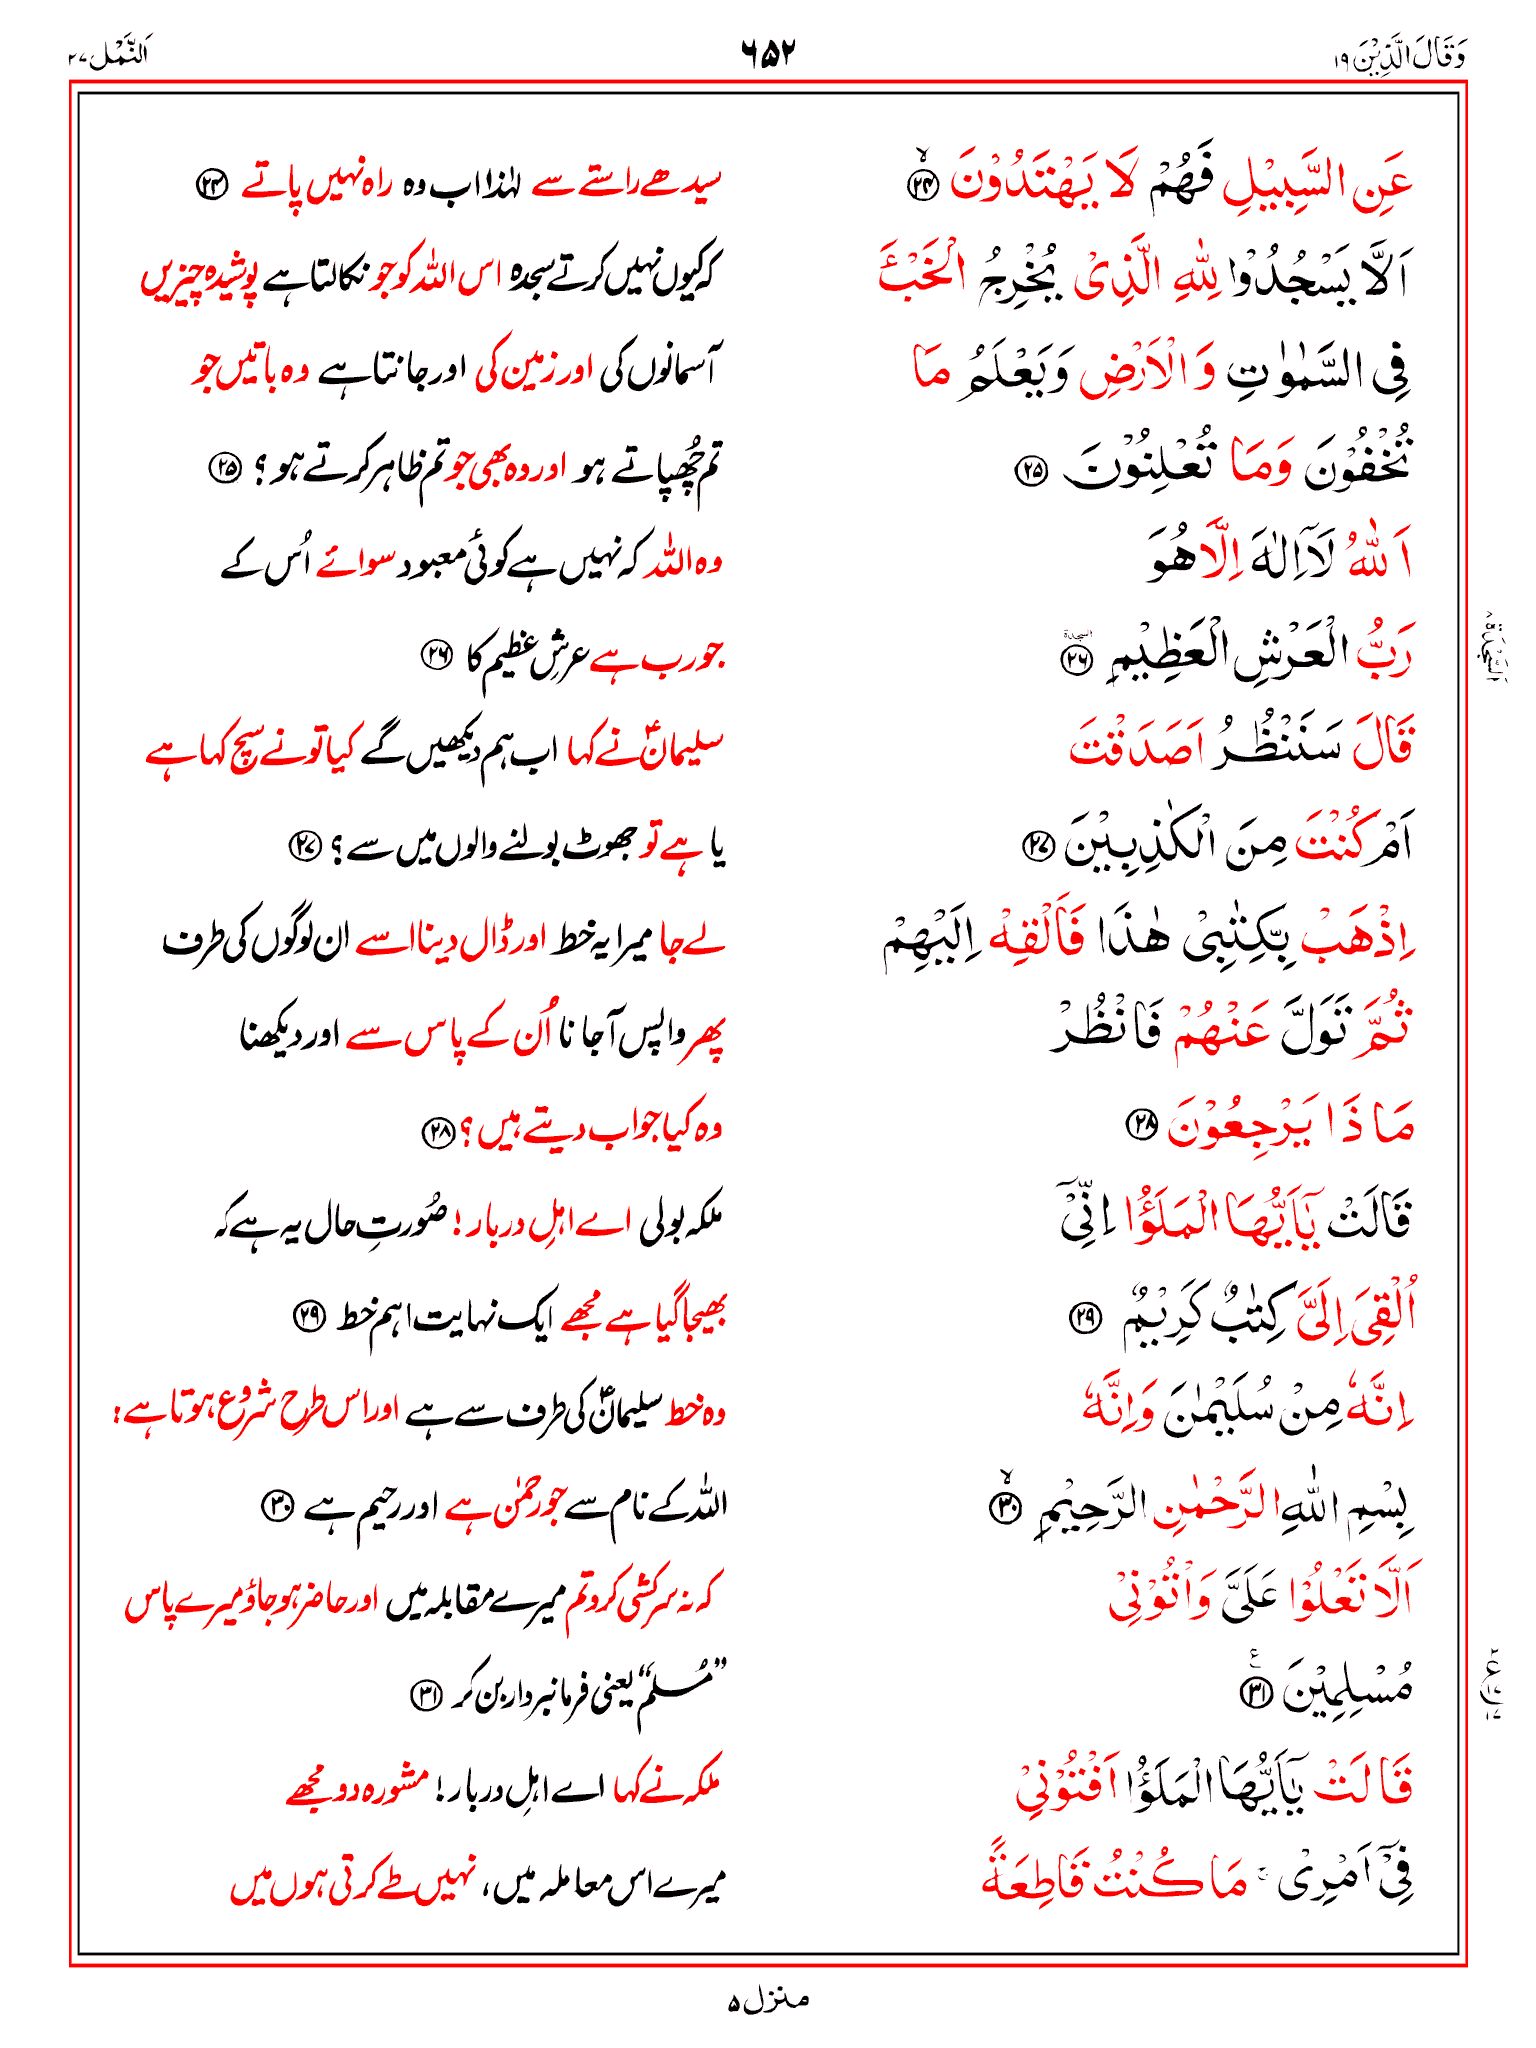 وَقَالَ الَّذِيْنَ ۱۹ ۶۵۲ اَلنَّمْل ۲۷
عَنِ السَّبِيْلِ فَهُمْ لَا يَهْتَدُوْنَ ۙ﴿۲۴﴾ سیدھے راستے سے لہٰذا اب وہ راہ نہیں پاتے ﴿۲۴﴾
اَلَّا يَسْجُدُوْا لِلّٰهِ الَّذِىْ يُخْرِجُ الْخَبْءَ کہ کیوں نہیں کرتے سجدہ اس اللہ کو جو نکالتا ہے پوشیدہ چیزیں
فِى السَّمٰوٰتِ وَالْاَرْضِ وَيَعْلَمُ مَا آسمانوں کی اور زمین کی اور جانتا ہے وہ باتیں جو
تُخْفُوْنَ وَمَا تُعْلِنُوْنَ ﴿۲۵﴾ تم چُھپاتے ہو اور وہ بھی جو تم ظاہر کرتے ہو؟ ﴿۲۵﴾
اَللّٰهُ لَاۤ اِلٰهَ اِلَّا هُوَ وہ اللہ کہ نہیں ہے کوئی معبود سوائے اُس کے
رَبُّ الْعَرْشِ الْعَظِيْمِ ﴿۲۶﴾ السجدة جو رب ہے عرشِ عظیم کا ﴿۲۶﴾
السَّجْدَة ۸
قَالَ سَنَنْظُرُ اَصَدَقْتَ سلیمانؑ نے کہا اب ہم دیکھیں گے کیا تو نے سچ کہا ہے
اَمْ كُنْتَ مِنَ الْكٰذِبِيْنَ ﴿۲۷﴾ یا ہے تو جھوٹ بولنے والوں میں سے؟ ﴿۲۷﴾
اِذْهَبْ بِّكِتٰبِىْ هٰذَا فَاَلْقِهْ اِلَيْهِمْ لے جا میرا یہ خط اور ڈال دینا اسے ان لوگوں کی طرف
ثُمَّ تَوَلَّ عَنْهُمْ فَانْظُرْ پھر واپس آجانا اُن کے پاس سے اور دیکھنا
مَاذَا يَرْجِعُوْنَ ﴿۲۸﴾ وہ کیا جواب دیتے ہیں؟ ﴿۲۸﴾
قَالَتْ يٰۤاَيُّهَا الْمَلَؤُا اِنِّىْۤ ملکہ بولی اے اہلِ دربار! صُورتِ حال یہ ہے کہ
اُلْقِىَ اِلَىَّ كِتٰبٌ كَرِيْمٌ ﴿۲۹﴾ بھیجا گیا ہے مجھے ایک نہایت اہم خط ﴿۲۹﴾
اِنَّهٗ مِنْ سُلَيْمٰنَ وَاِنَّهٗ وہ خط سلیمانؑ کی طرف سے ہے اور اس طرح شروع ہوتا ہے:
بِسْمِ اللّٰهِ الرَّحْمٰنِ الرَّحِيْمِ ۙ﴿۳۰﴾ اللہ کے نام سے جو رحمٰن ہے اور رحیم ہے ﴿۳۰﴾
اَلَّا تَعْلُوْا عَلَىَّ وَاْتُوْنِىْ کہ نہ سرکشی کرو تم میرے مقابلہ میں اور حاضر ہو جاؤ میرے پاس
مُسْلِمِيْنَ ﴿۳۱﴾ ع ”مُسلم“ یعنی فرمانبردار بن کر ﴿۳۱﴾
۲ ع ۱۷ ۱۷
قَالَتْ يٰۤاَيُّهَا الْمَلَؤُا اَفْتُوْنِىْ ملکہ نے کہا اے اہلِ دربار! مشورہ دو مجھے
فِىْۤ اَمْرِىْ ۚ مَا كُنْتُ قَاطِعَةً میرے اس معاملہ میں، نہیں طے کرتی ہوں میں
منزل ۵